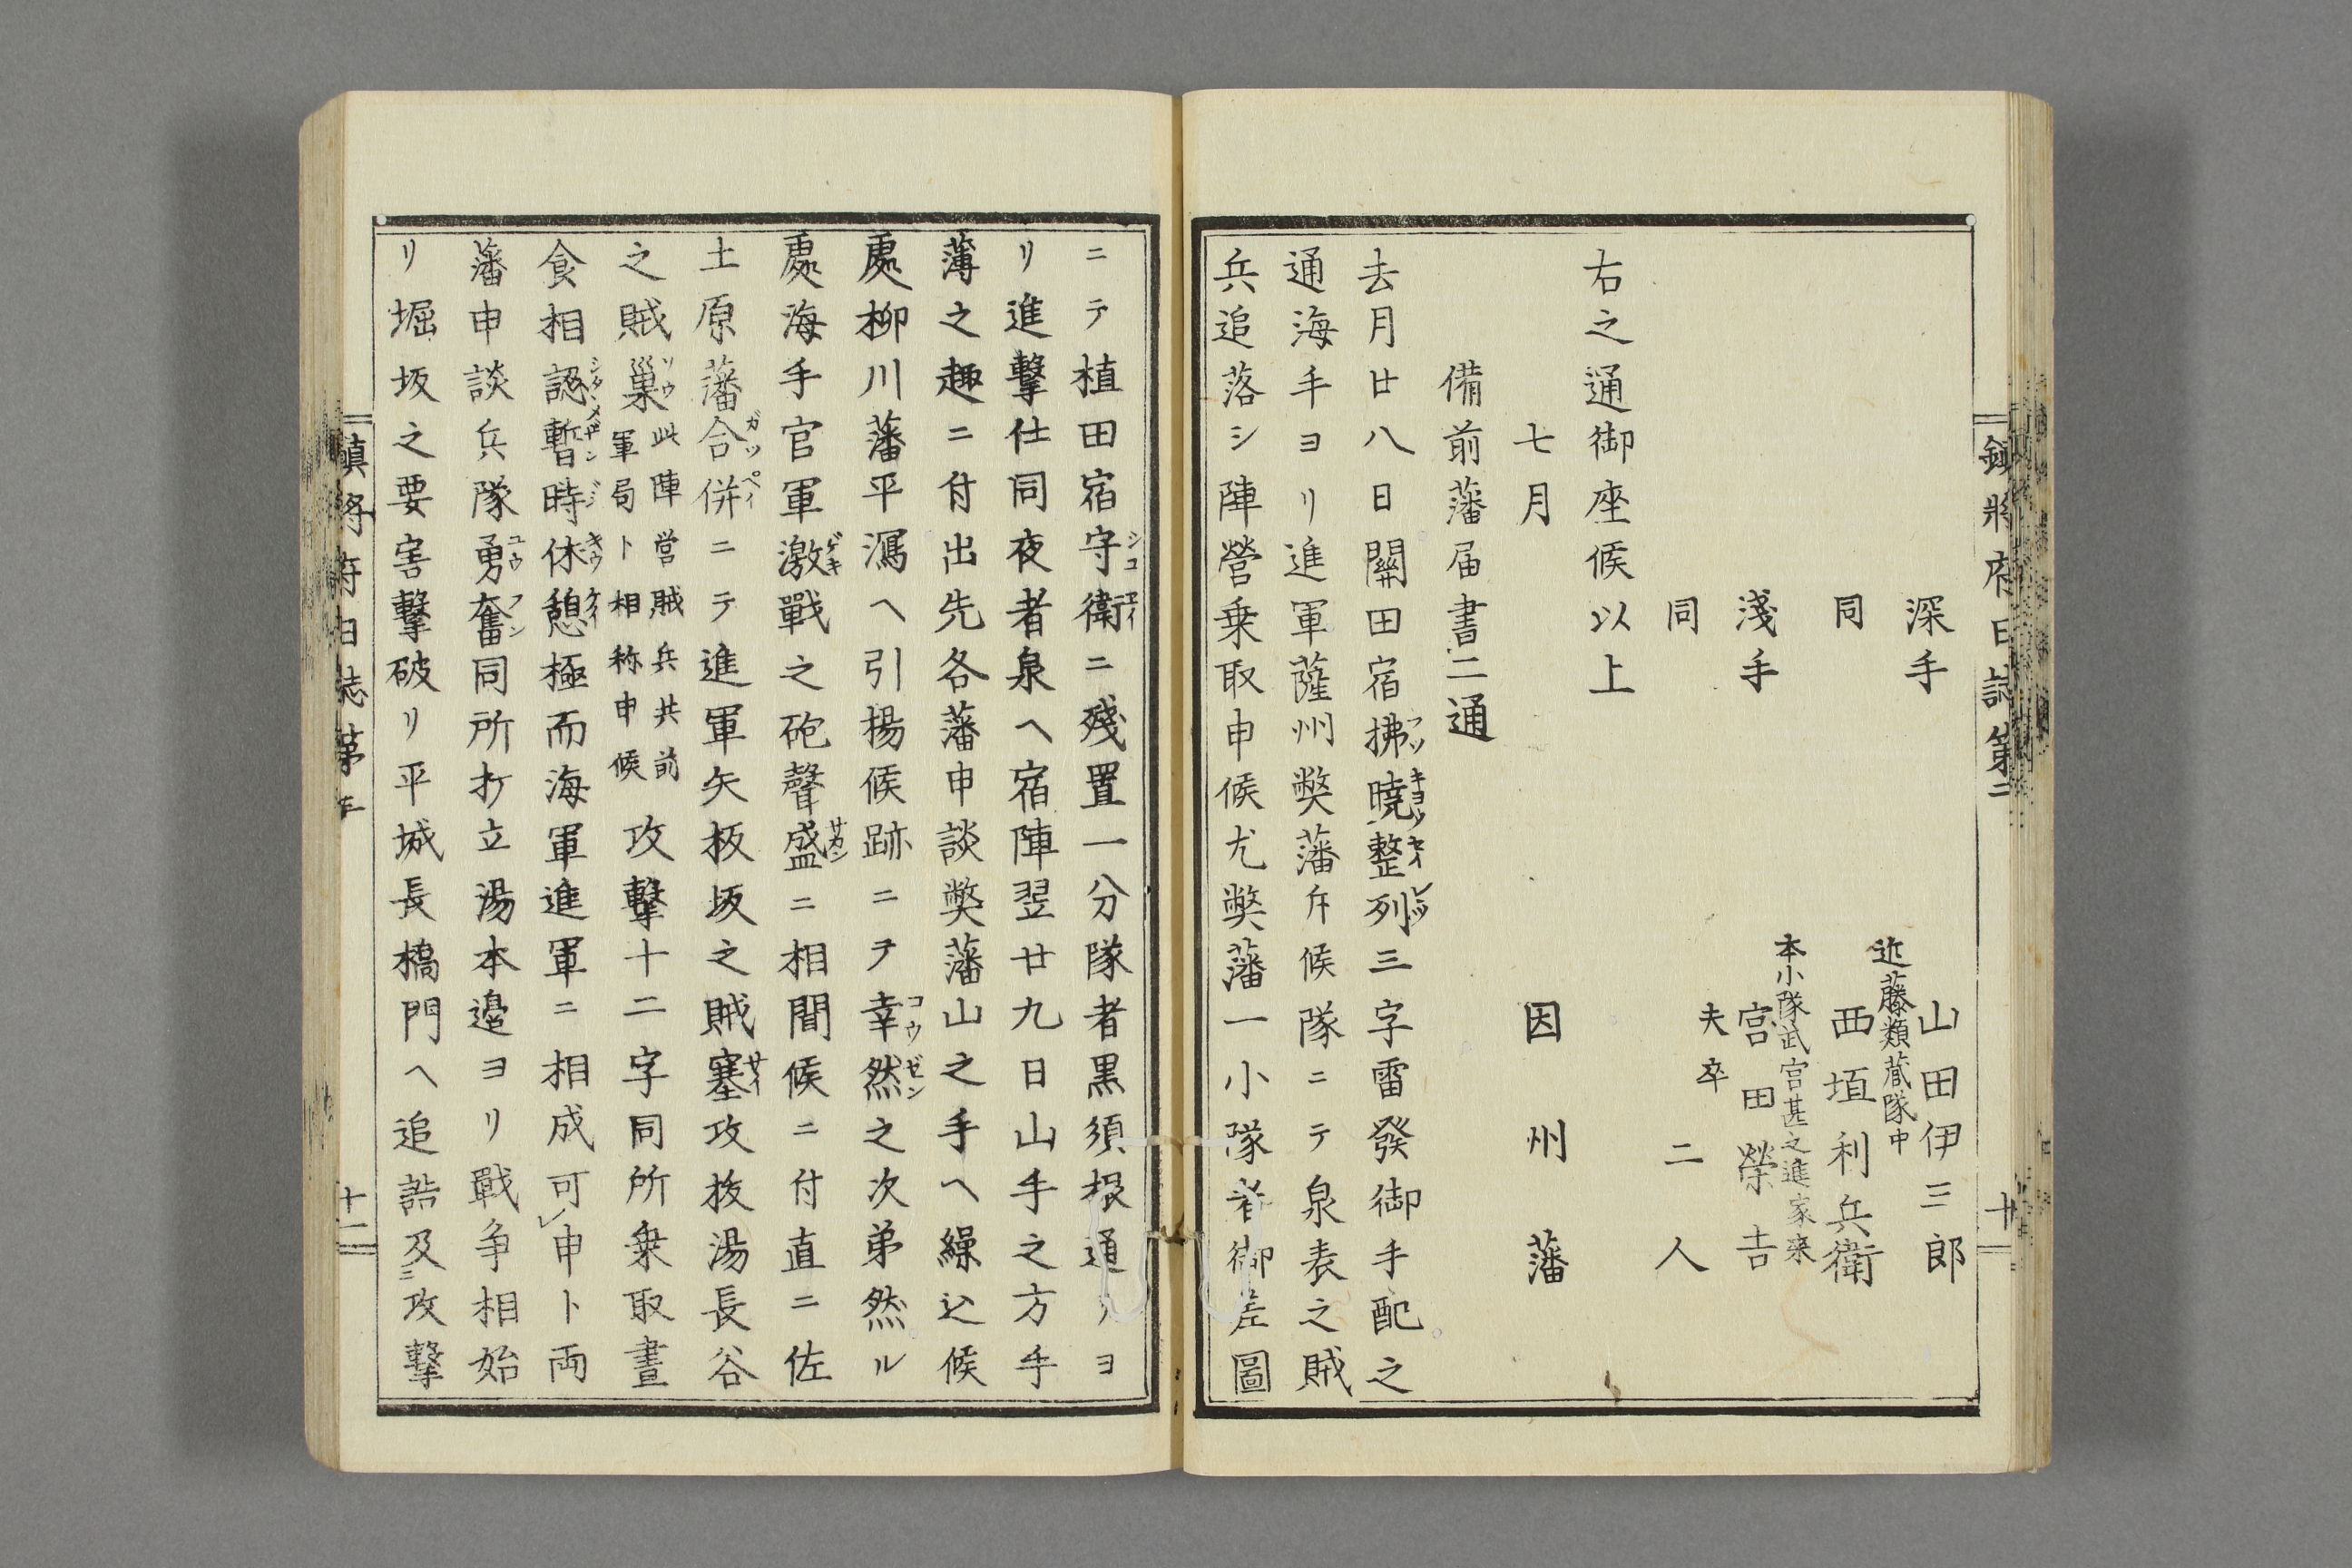 鎮將府日誌第二
十
深手
山田伊三郎
近藤類蔵隊中
同
西垣利兵衛
本小隊武宮甚之進家来
淺手
宮田榮吉
同
夫卒
二人
右之通御座候以上
七月
因州藩
備前藩届書二通
去月廿八日關田宿拂曉整列三字雷發御手配之
フツキヨウセイレツ
通海手ヨリ進軍薩州弊藩斥候隊ニテ泉表之賊
兵追落シ陣營乗取申候尤弊藩一小隊者御差圖
ニテ植田宿守衛ニ殘置一分隊者黒須根通ヨ
シユエイ
リ進擊仕同夜者泉ヘ宿陣翌廿九日山手之方手
薄之趣ニ付出先各藩申談弊藩山之手ヘ繰込候
處柳川藩平潟ヘ引揚候跡ニヲ幸然之次弟然ル
コウゼン
處海手官軍激戰之砲聲盛ニ相聞候ニ付直ニ佐
ゲキ
サカン
土原藩合併ニテ進軍矢板坂之賊塞攻抜湯長谷
ガツペイ
サイ
之賊巢
ソウ
此陣営賊兵共前
軍局ト相称申候
攻擊十二字同所乗取晝
食相認暫時休憩極而海軍進軍ニ相成可申ト両
シタヽメザンジキウケイ
藩申談兵隊勇奮同所打立湯本邉ヨリ戰争相始
ユウフン
リ堀坂之要害擊破リ平城長橋門ヘ追詰及攻擊
ニ
鎮將府日誌第二
十一